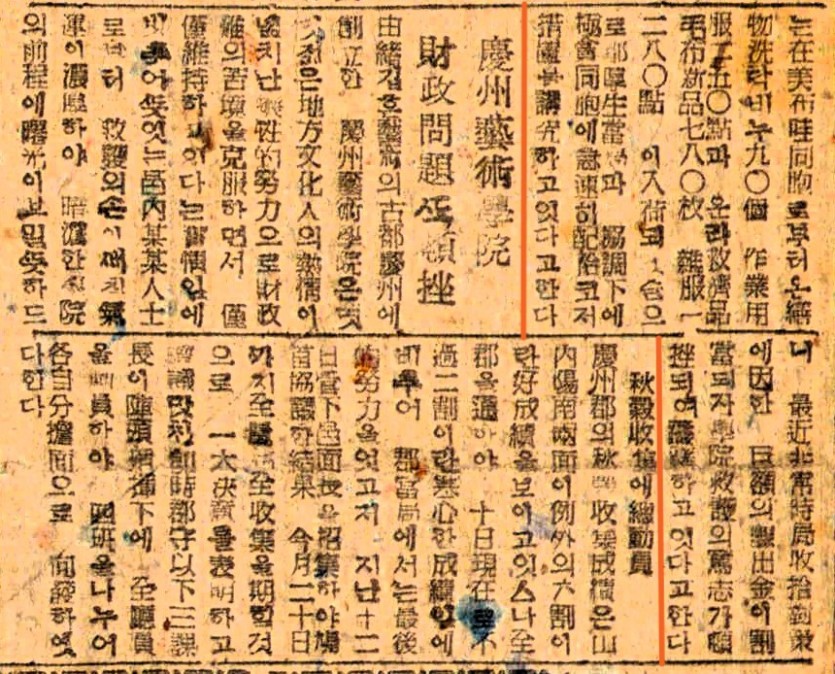 는在美布哇同胞로부터온繕
物洗락비누九〇個 作業用
服 五〇點과 온락救濟品
毛布新品七八〇枚 雜服一
二八〇點 이入荷되 음으
로郡厚生當 과 協調下에
極當同胞에急速히配給코저
措置를講究하고잇다고한다
慶州藝術學院
財政問題로頓挫
由緖깁흔藝術의古都慶州에
創立한 慶州藝術學院은멧
멧젊은地方文化人의熱情이
넘치난犧牲的努力으로財政
難의苦境을克服하면서 僅
僅維持하고잇다는實情임에
비추어뜻잇는邑內某某人士
로부터 救護의손이 氣
運이濃厚하야 暗澹한學院
의前程에曙光이보일뜻하드
니 最近北常時局收拾對策
에因한 巨額의醵出金이割
當되자學院救護의篤志가頓
挫되여 하고잇다고한다
秋穀收集에總動員
慶州郡의秋穀收集成績은山
內陽南兩面이例外의六割이
라好成績을보이고잇스나全
郡을通하야 十日現在로不
過二割이란寒心한成績임에
비추어 郡當局에서는最後
的努力을엇고저 지난十二
日管下邑面長을招集하야場
首協議한結果 今月二十日
까지全 全收集을期할것
으로 一大決意를表明하고
맛치 時郡守以下三課
長이陣頭指揮下에 全廳員
을動員하야 四班을나누어
各自分擔面으로 向發하엿
다한다